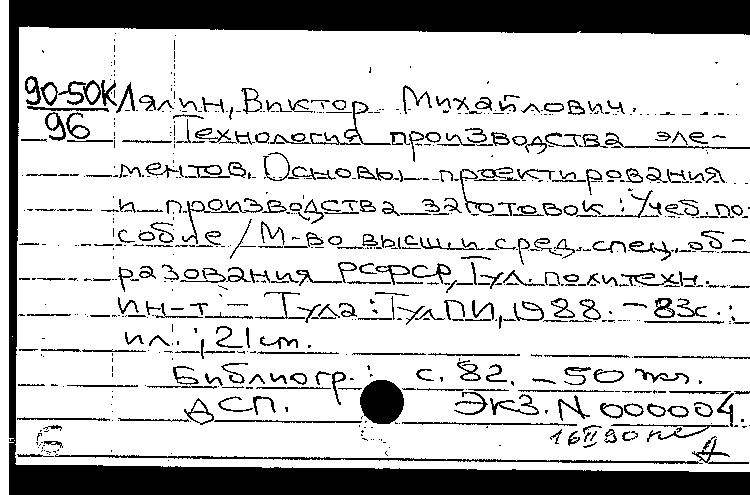 90-50К Лялин, Виктор Михайлович.
96 Технология производства эле-
ментов. Основы проектирования
и производства заготовок: Учеб. по-
собие / М-во высш. и сред. спец. об-
разования РСФСР, Тул. политехн.
ин-т. - Тула: ТулПИ, 1988. - 83с.:
ил.; 21 cm.
Библиогр.: с. 82. - 50 экз.
ДСП. Экз. N 000004.
6 16 II 90